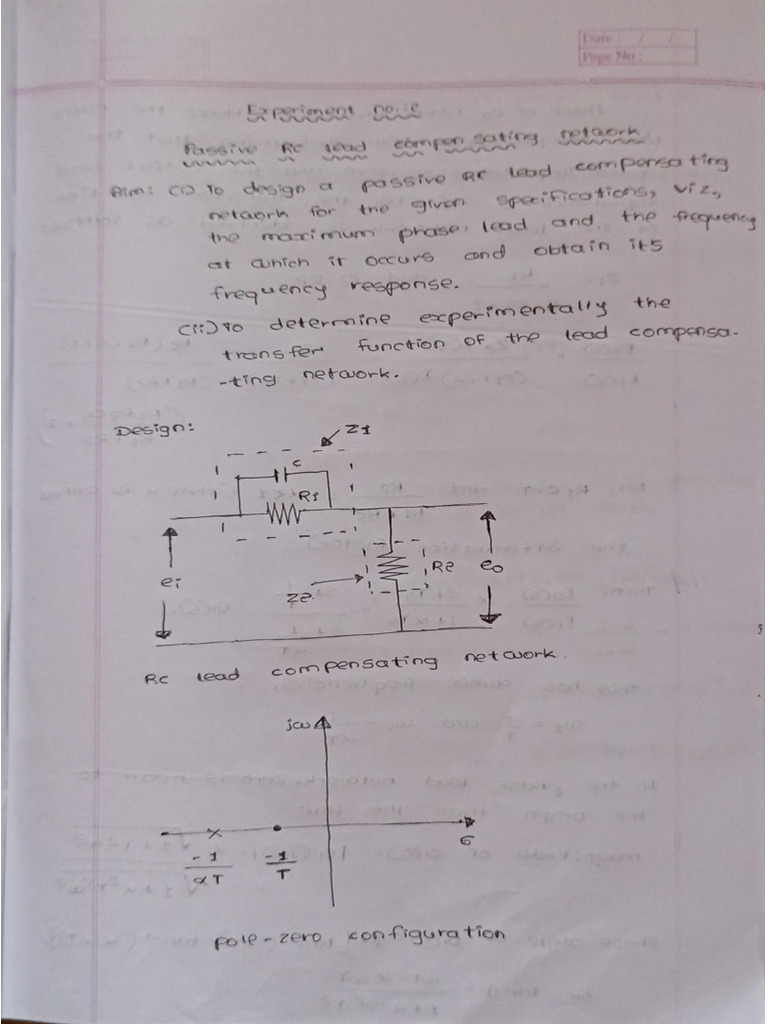 Date: / /
Page No:
Experiment no:
Passive RC lead compensating network
Aim: (i) To design a passive RC lead compensating
network for the given specifications, viz.,
the maximum phase lead and the frequency
at which it occurs and obtain its
frequency response.
(ii) To determine experimentally the
transfer function of the lead compensa-
-ting network.
Design:
Z1
C
R1
ei
Z2
R2
eo
RC lead compensating network.
jω
-1/αT
-1/T
σ
Pole-zero, configuration